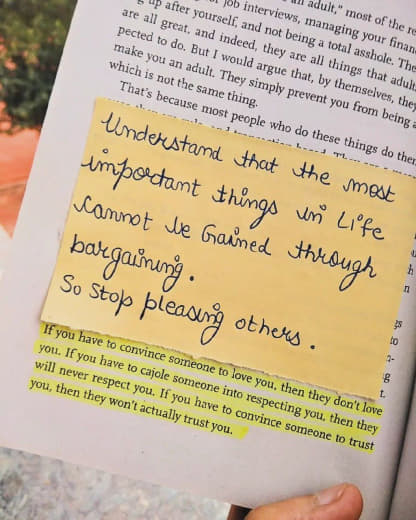 an adult," most of the re
job interviews, managing your finan
g up after yourself, and not being a total asshole. The
are all great, and indeed, they are all things that adult
pected to do. But I would argue that, by themselves, they
make you an adult. They simply prevent you from being a
which is not the same thing.
That's because most people who do these things do then
Understand that the most
important things in Life
cannot be Gained through
bargaining.
So Stop pleasing others.
If you have to convince someone to love you, then they don't love
you. If you have to cajole someone into respecting you, then they
will never respect you. If you have to convince someone to trust
you, then they won't actually trust you.